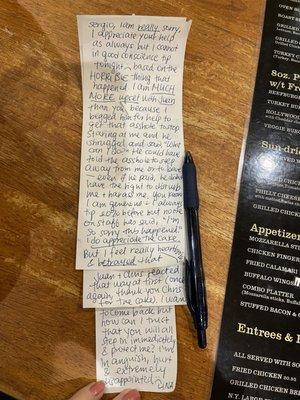 Sergio, I am really sorry,
I appreciate your help
as always but I cannot
in good conscience tip
tonight - based on the
HORRIBLE thing that
happened. I am MUCH
MORE upset with Juan
than you because I
begged him for help to
get that asshole to stop
staring at me and he
shrugged and said "What
can I do?" He could have
told the asshole to step
away from me or to leave
- even if he paid, he didn't
have the right to disrupt
me & harass me. You know
I am generous & I always
tip 50% before but no one
on staff has said, "I'm
so sorry this happened."
I do appreciate the cake.
But I feel really horrible
& betrayed that
Juan & Chris reacted
that way at first (once
again, thank you Chris
for the cake). I want
to come back but
how can I trust
that you will all
step in immediately
& protect me? I'm
in anguish, hurt
& extremely
disappointed.
OVEN
ROAST
GRILLED
GRILLED
TURKEY
8oz.
w/t Fr
BEEFBURGER
TURKEY BU
HOLLYWOO
VEGGIE BUR
Sun-dri
TURKEY C
PHILLY CHEESE
GRILLED CHICKEN
Appetizer
MOZZARELLA STI
CHICKEN FINGER
FRIED CALAMARI
BUFFALO WINGS
COMBO PLATTER
(Mozzarella sticks, Buf
STUFFED BACON & C
Entrees & F
ALL SERVED WITH SO
FRIED CHICKEN
GRILLED CHICKEN BREA
N.Y.